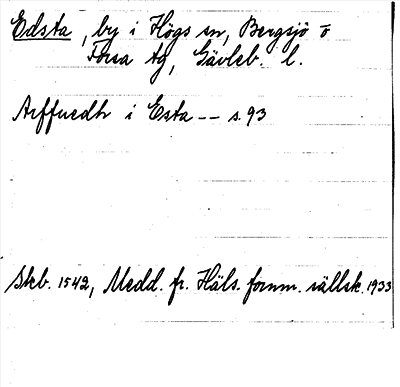 Edsta, by i Högs sn, Bergsjö o
Forsa tg, Gävleb. l.
Arffuedh i Esta -- s. 93
Skb. 1542, Medd. fr. Häls. fornm. sällsk. 1933